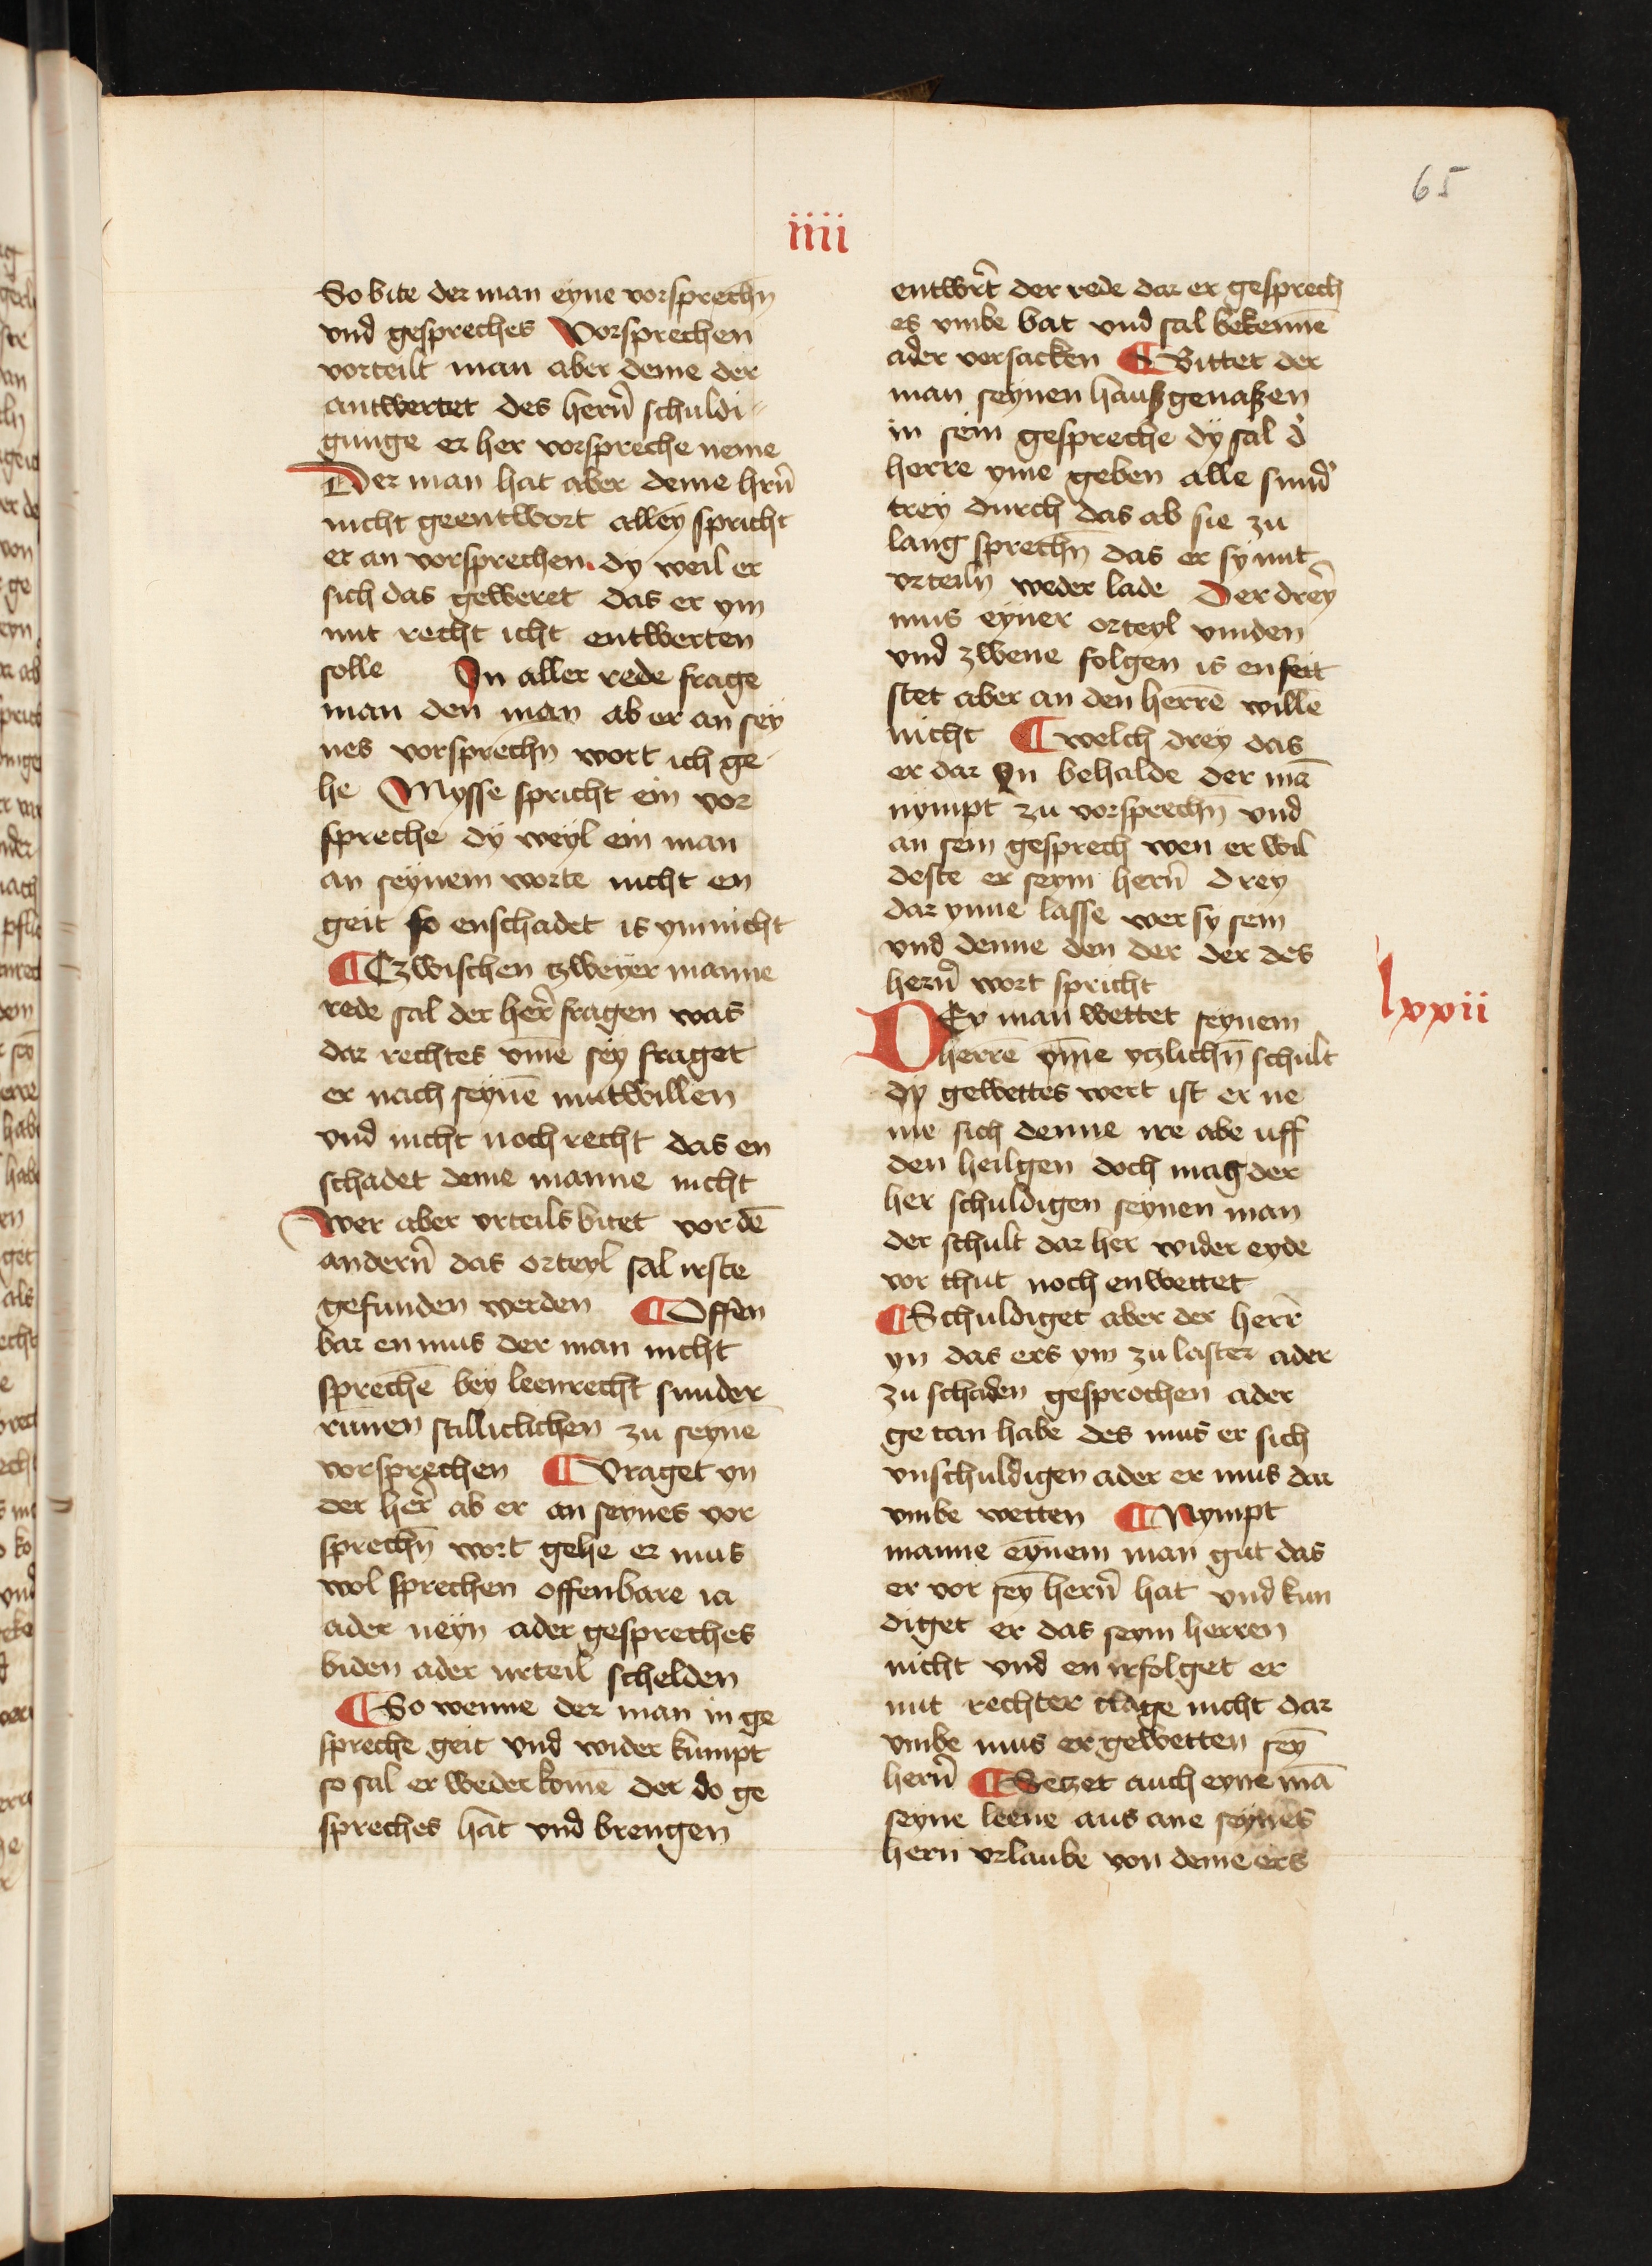 65
iiii
So bite der man eyne vorsprechn̄
vnd gespreches Vorsprechen
vorteilt man aber deme der
antwertet des hern̄ schuldi⸗
gunge er her vorspreche neme
Der man hat aber deme hrn̄
nicht geentwort alleȳ spricht
er an vorsprechen. dy weil er
sich das geweret das er ym
mit recht icht entwerten
solle In aller rede frage
man den man ab er an sey
nes vorsprechn wort ich ge
he Mysse spricht ein vor
spreche dy weyl ein man
an seynem worte nicht en
geit so enschadet is ym nicht
¶ Czwischen tzweyer manne
rede sal der her̄ fragen was
dar rechtes vm̄e sey fraget
er nach seynē mutwillen
vnd nicht noch recht das en
schadet deme manne nicht
Wer aber vrteils bitet vor dē
andern̄ das orteyl sal irste
gefunden werden ¶ Offen
bar en mus der man nicht
sprechē bey leenrecht sunder
runen stilliclichen zu seynē
vorsprechen ¶ Vraget yn
der her̄ ab er an seynes vor
sprechn̄ wort gehe er mus
wol sprechen offenbare ia
ader neyn ader gespreches
biden ader urteil schelden
¶ So wenne der man in ge
spreche geit vnd wider kumpt
so sal er weder komē der do ge
spreches hat vnd brengen
entwr̄t der rede dar er gesprech
es vmbe bat vnd sal bekennē
ader versacken ¶ Bittet der
man seynen haußgenaßen
in sein gespreche dy sal d̄
herre yme geben alle sund̄
trey durch das ab sie zu
lang sprechn̄ das er sy mit
vrteiln weder lade Der drey
mus eyner orteyl vinden
vnd zwene folgen is en seit
stet aber an den herrē willē
nicht ¶ welch drey das
er dar In behalde der mā
nympt zu vorsprechn̄ vnd
an sein gesprech wen er wil
deste er seym hern̄ drey
dar ynne lasse wer sy sein
vnd denne den der der des
hern̄ wort spricht
lxxii
DEr man wettet seynem
herrē vm̄e ytzlichn̄ schult
dy gewettes wert ist er ne
me sich denne ire abe uff
den heilgen doch mag der
her schuldigen seynen man
der schult dar her wider eyde
vor thut noch enwettet
¶ Schuldiget aber der herr̄
yn das ers ym zu laster ader
zu schaden gesprochen ader
ge tan habe des mus er sich
vnschuldigen ader er mus dar
vmbe wetten ¶ Nympt
manne eynem man gut das
er vor seȳ hern̄ hat vnd kun
diget er das seym herren
nicht vnd en irfolget er
mit rechter clage nicht dar
vmbe mus er gewetten seȳ
hern̄ ¶ Setzet auch eyne mā
seyne leene aus ane seynes
hern vrlaube von deme ers